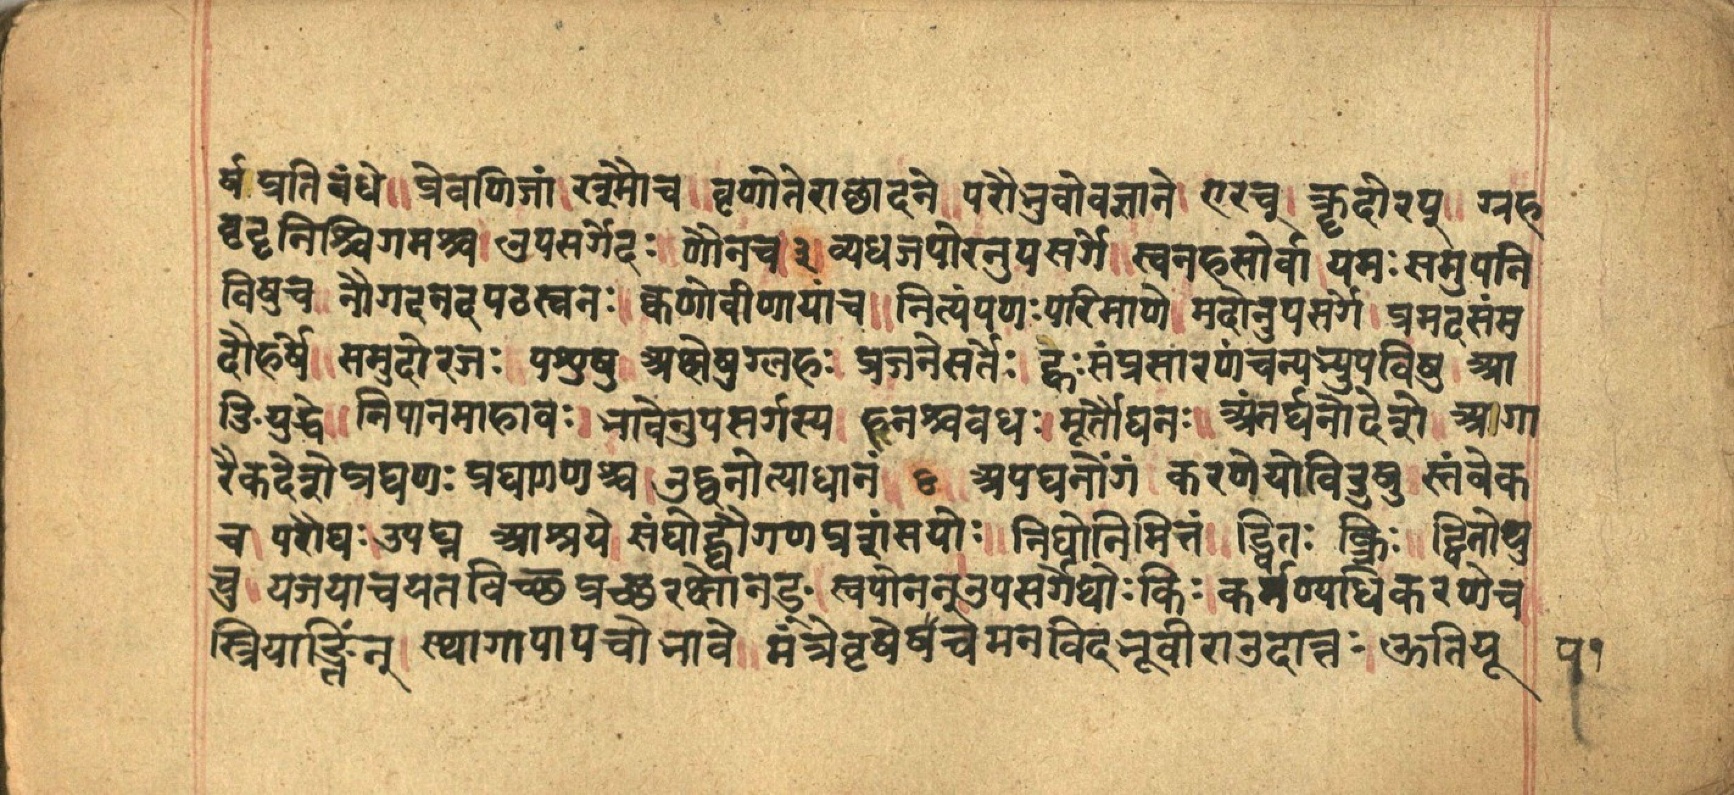 र्षप्रतिबंधे ॥ प्रेवणिजां रश्मौच ॥ वृणोतेराछादने ॥ परौभुवोवज्ञाने । एरच् । ॠदोरप् ॥ ग्रह
वृदृनिश्चिगमश्च । उपसर्गेदः । नौनच ३ व्यधजपोरनुपसर्गे । स्वनहसोर्वा । यमः समुपनि
विषुच नौगदनदपठस्वनः । क्वणोवीणायांच ॥ नित्यंपणःपरिमाणे । मदोनुपसर्गे । प्रमदसंम
दौहर्षे । समुदोरजः । पशुषु । अक्षेषुग्लहः । प्रजनेसर्तेः । ह्वःसंप्रसारणंचन्यभ्युपविषु । आ
ङियुद्धे ॥ निपानमाहावः । भावेनुपसर्गस्य । हनश्चवधः । मूर्तौघनः । अंतर्घनोदेशे । अगा
रैकदेशेप्रघणः प्रघाणश्च । उद्घनोत्याधानं ४ अपघनोंगं । करणेयोविद्रुषु । स्तंबेक
च । परौघः । उपघ्न आश्रये । संघोद्घौगणप्रशंसयोः ॥ निघोनिमित्तं । ड्वितः क्त्रिः ॥ ट्वितोथु
च् । यजयाचयतविच्छप्रच्छरक्षोनङ् । स्वपोनन् । उपसर्गेघोः किः । कर्मण्यधिकरणेच
स्त्रियाङ्क्तिन् । स्थागापापचो भावे ॥ मंत्रेवृषेषपचमनविदभूवीराउदात्तः । ऊतियू
५१